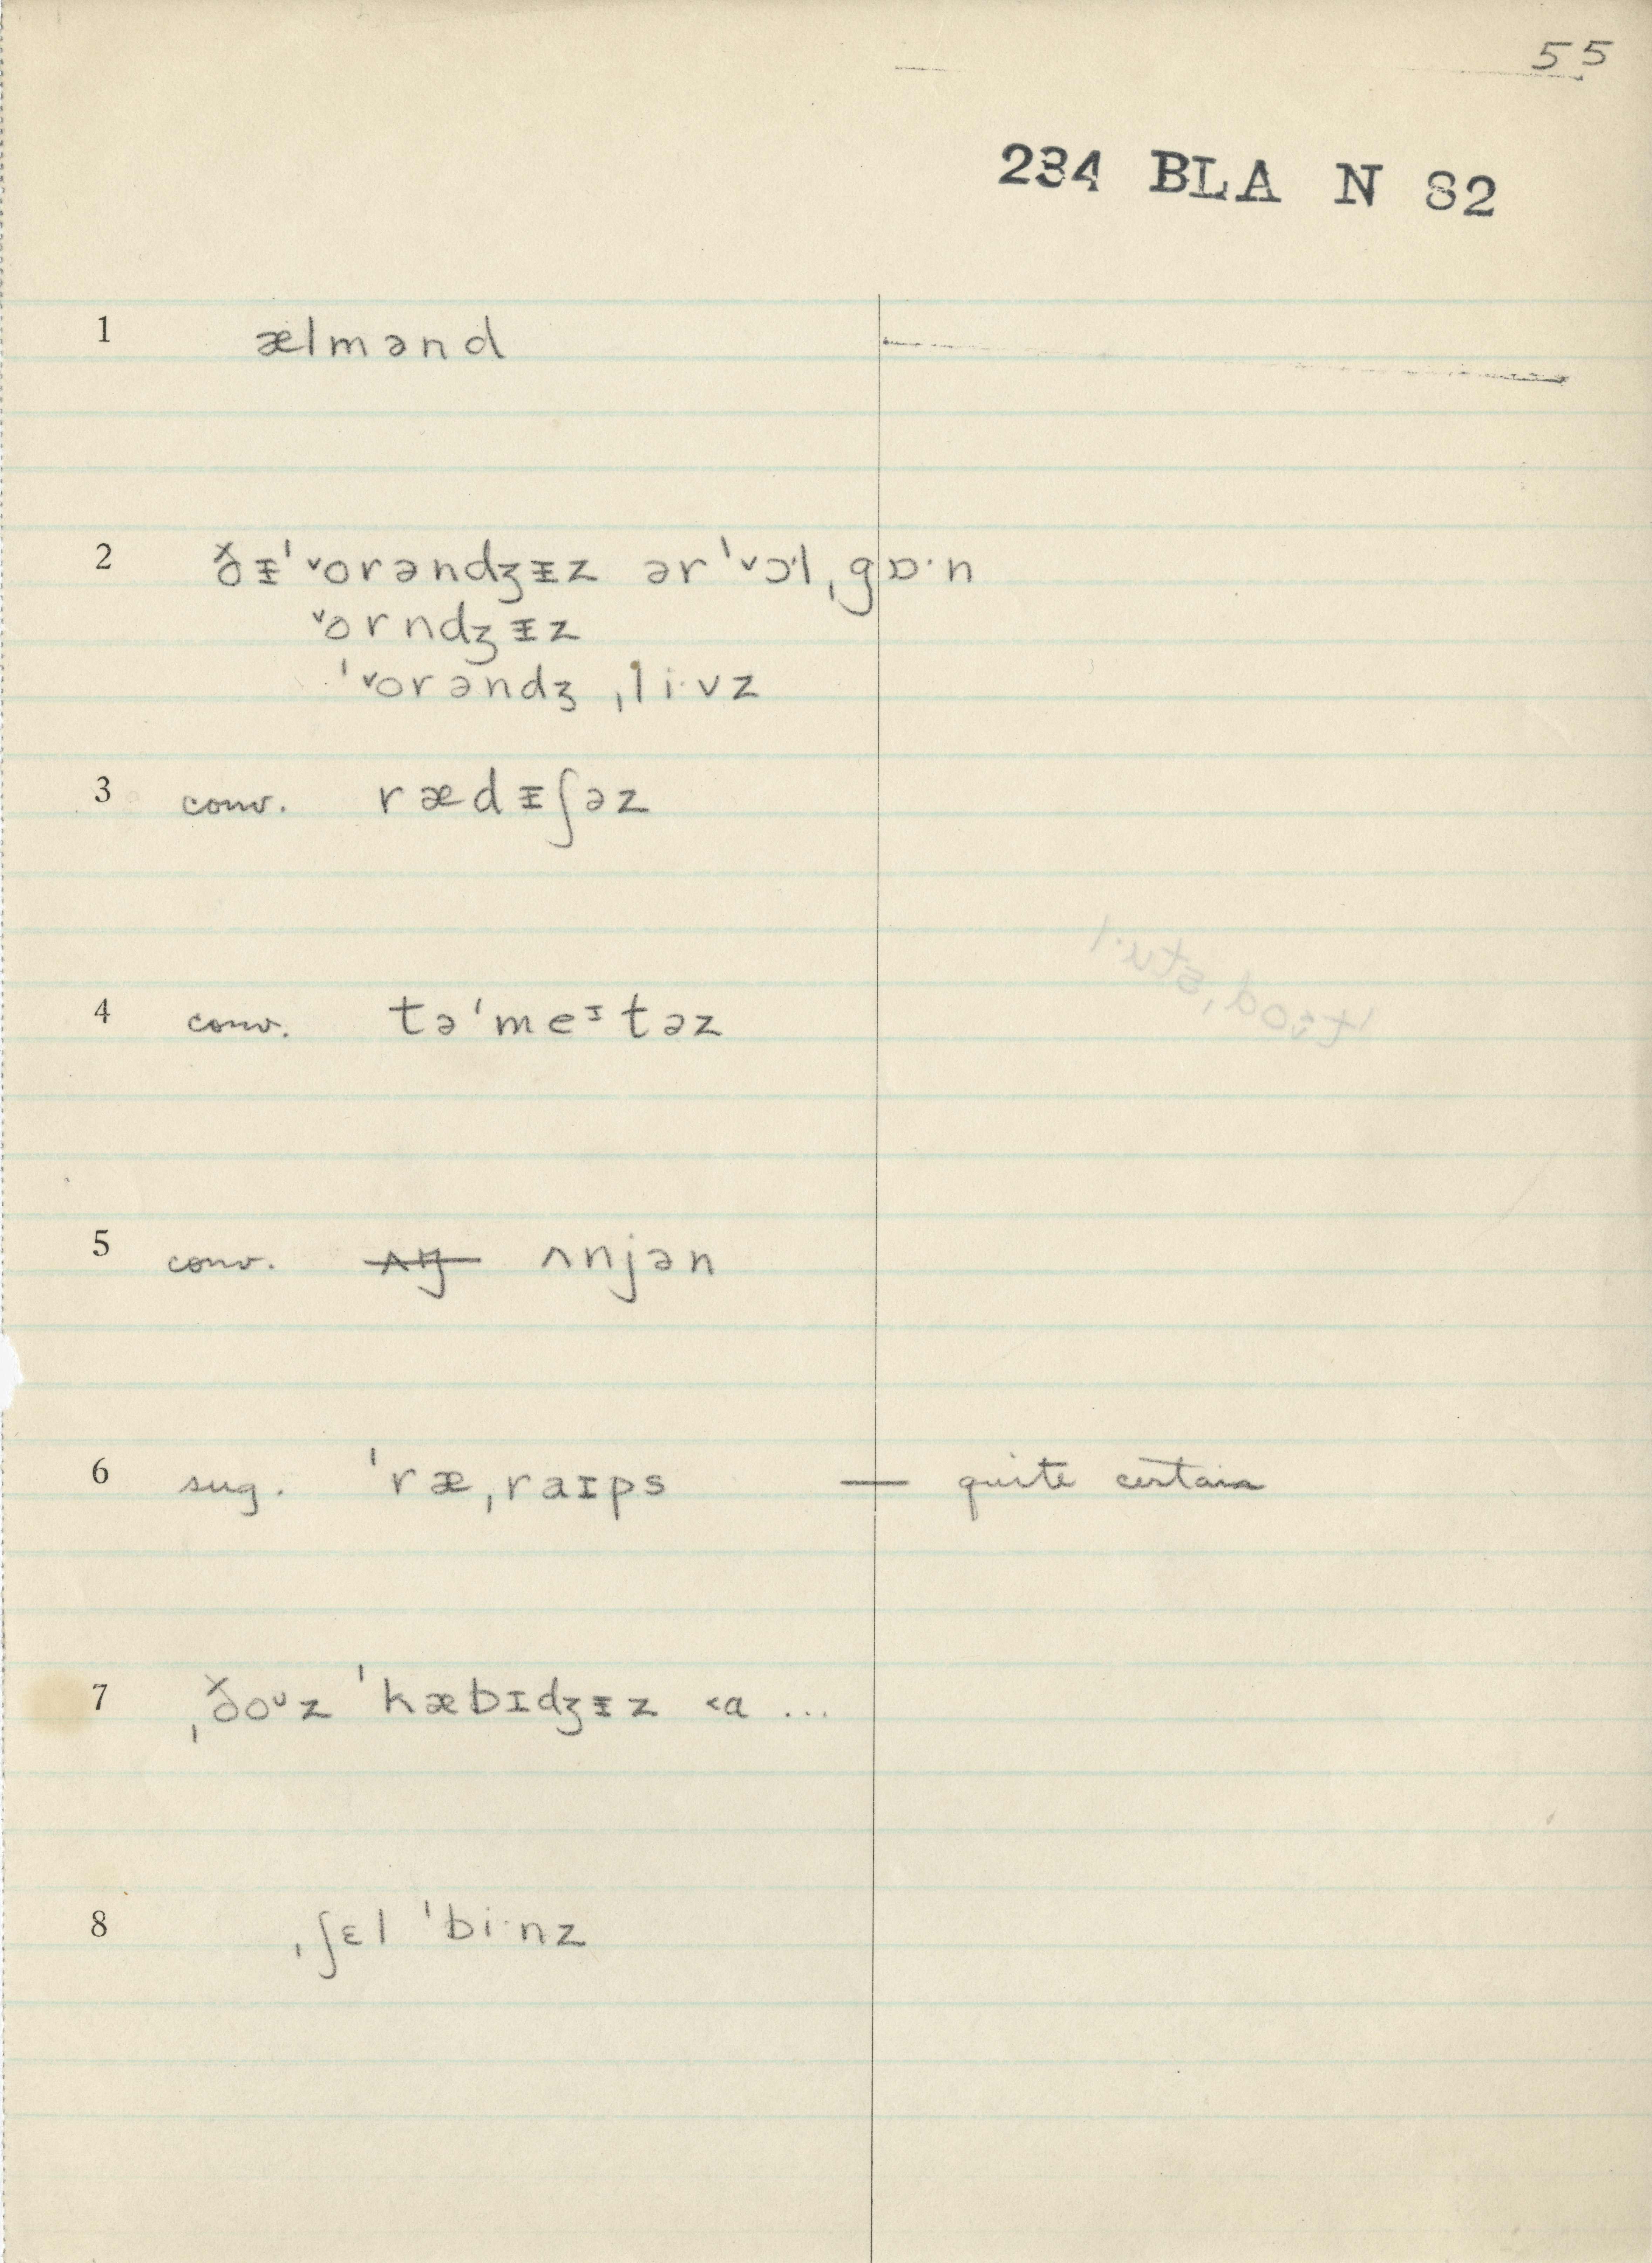 55
234 BLA N 82
1 ælmənd
2 ðᵻˈ˅orəndʒᵻz ərˈ˅ɔ·l ˌgɒ·n
˅orndʒᵻz
ˈ˅orəndʒ ˌli·vz
3 conv. rædᵻʃəz
4 conv. təˈmeᶦtəz
5 conv. ʌnjən
6 sug. ˈræˌraɪps — quite certain
7 ˌðoᶷz ˈkæbɪdʒᵻz ˂ɑ ...
8 ˌʃɛl ˈbi·nz